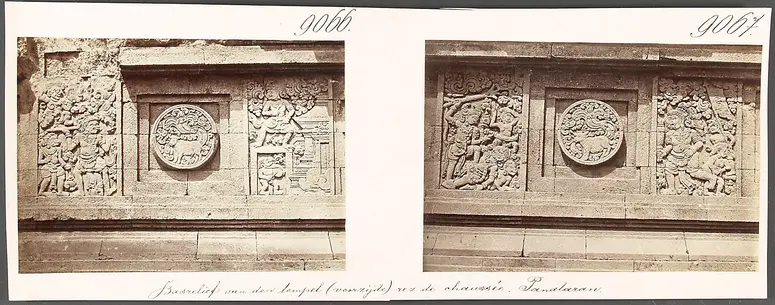 9066.
9067.
Basrelief van den tempel (voorzijde) rez de chaussée. Panataran.